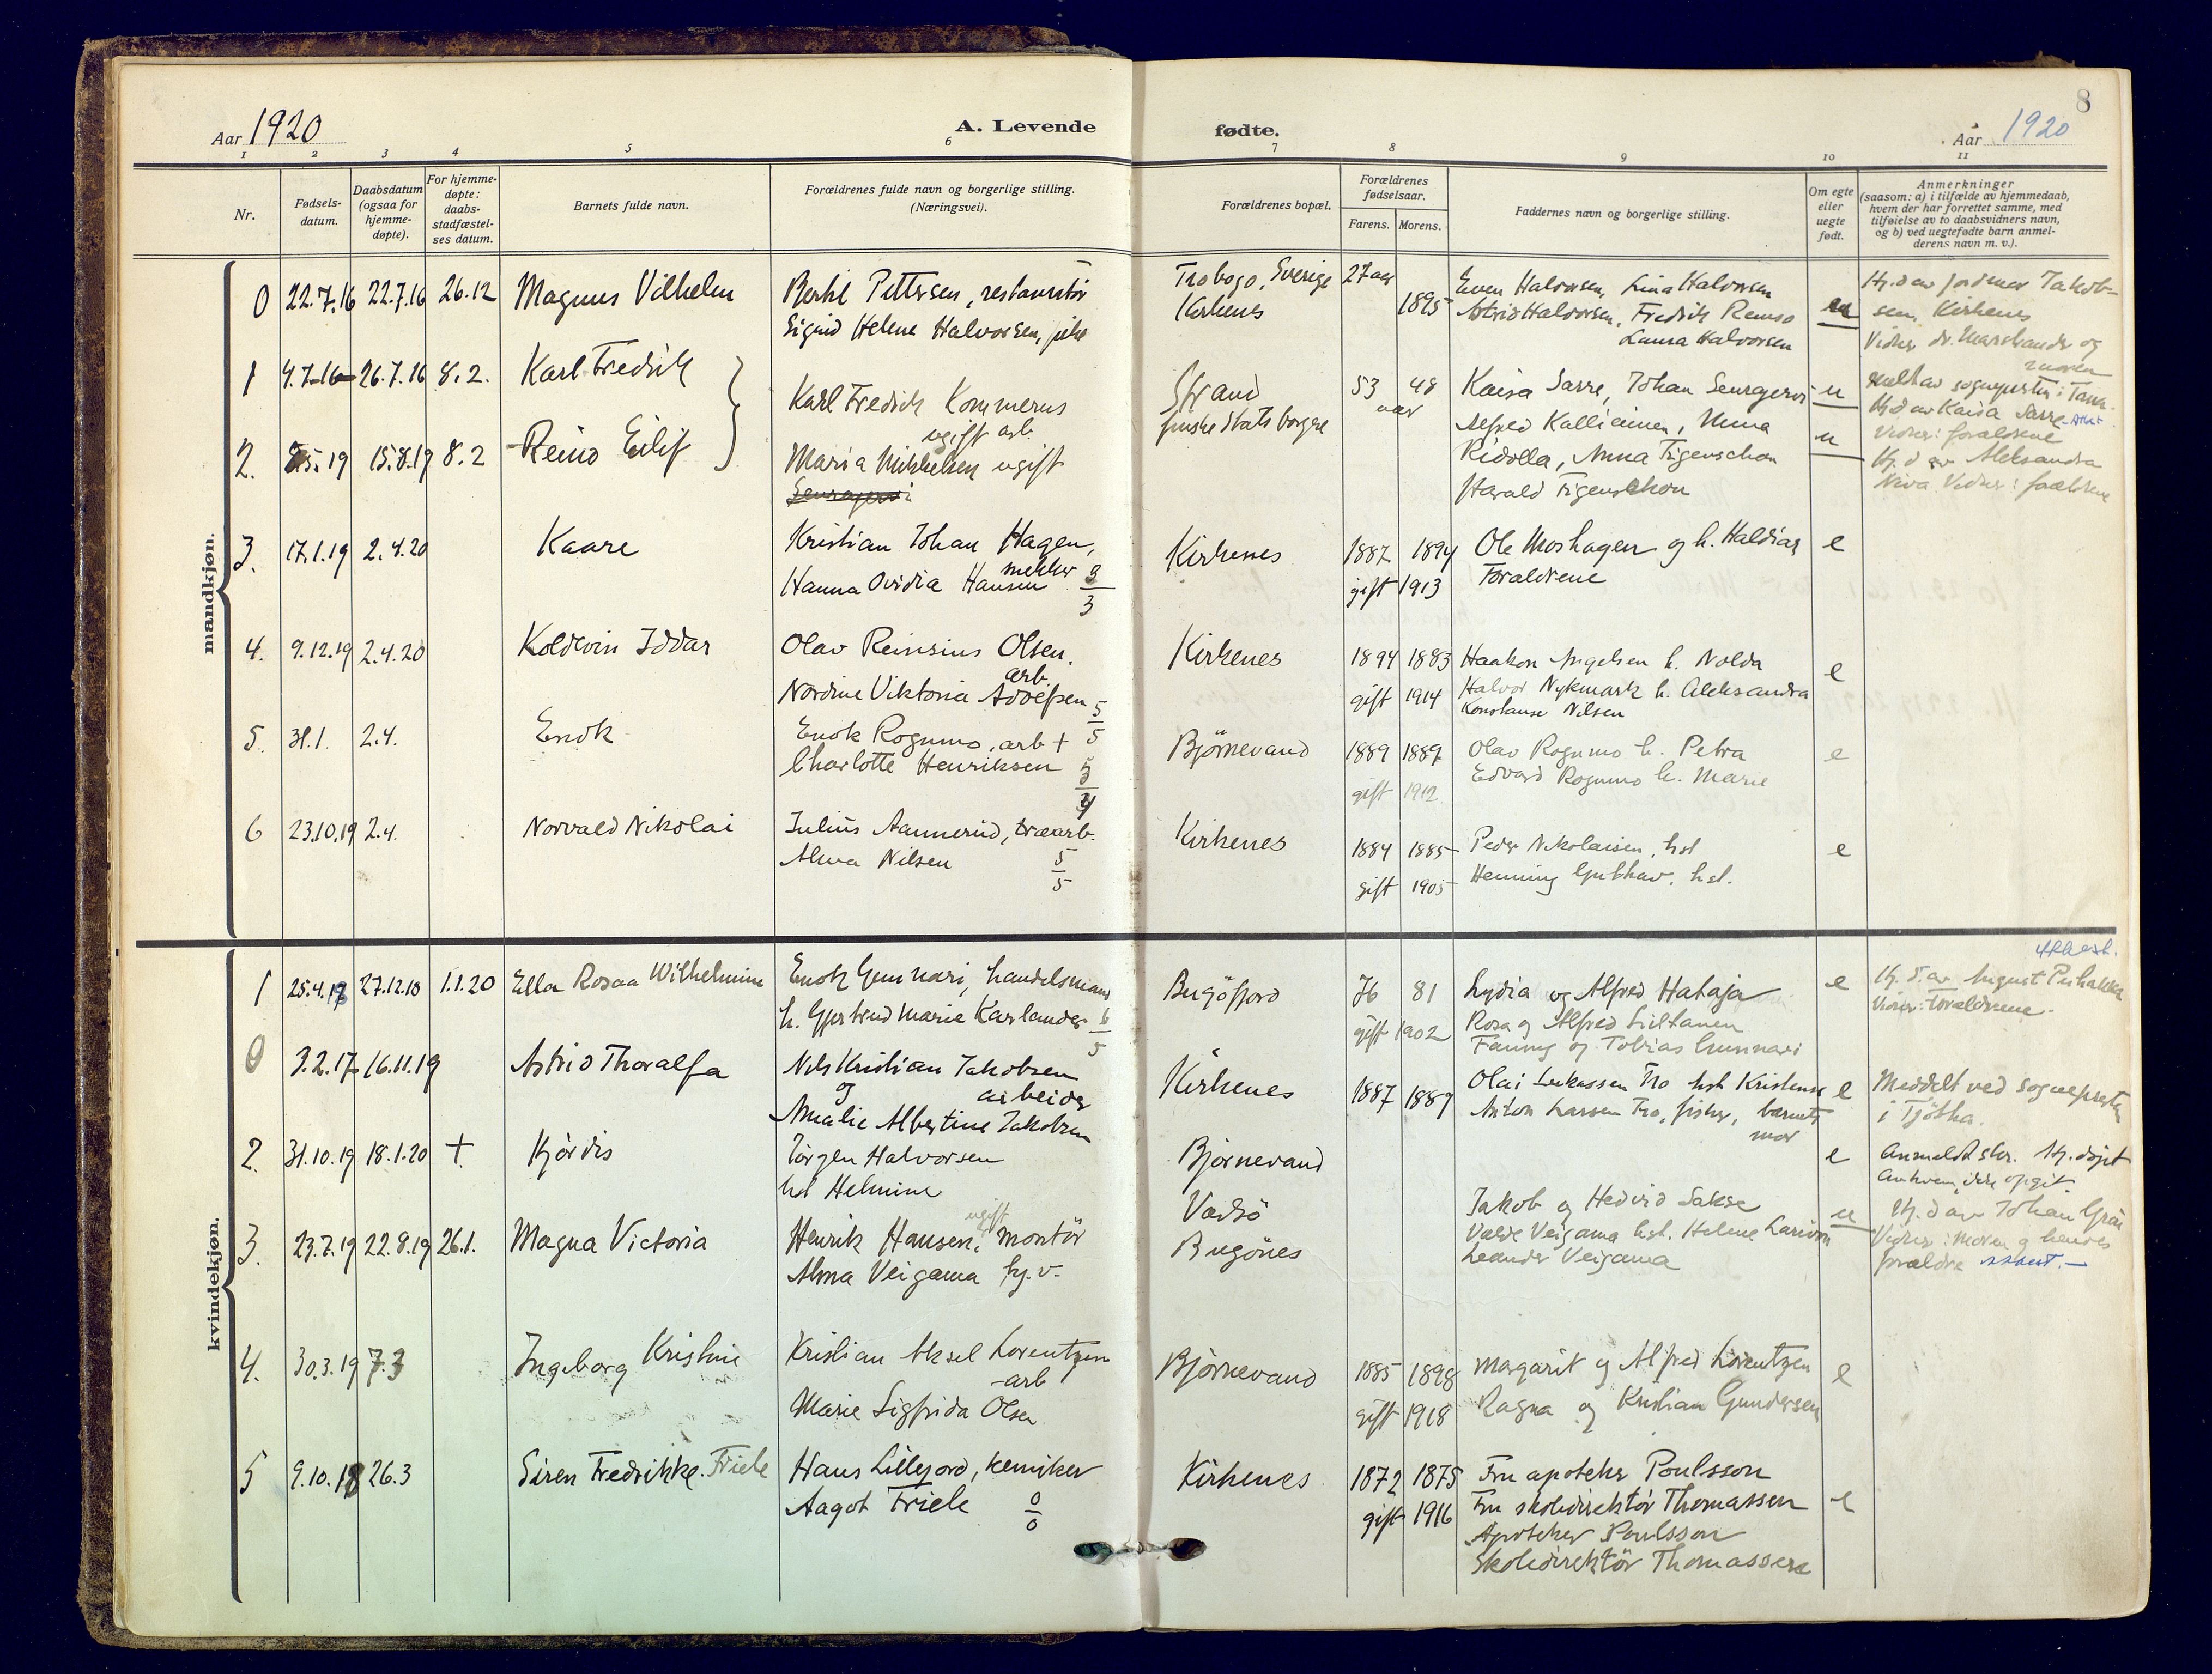 8
Aar 1920
A. Levende fødte.
Aar 1920
1 2 3 4 5 6 7 8 9 10 11
Nr.
Fødsels-
datum.
Daabsdatum
(ogsaa for
hjemme-
døpte).
For hjemme-
døpte:
daabs-
stadfæstel-
ses datum.
Barnets fulde navn.
Forældrenes fulde navn og borgerlige stilling.
(Næringsvei).
Forældrenes bopæl.
Forældrenes
fødselsaar.
Farens. Morens.
Faddernes navn og borgerlige stilling.
Om egte
eller
uegte
født.
Anmerkninger
(saasom: a) i tilfælde av hjemmedaab,
hvem der har forrettet samme, med
tilføielse av to daabsvidners navn,
og b) ved uegtefødte barn anmel-
derens navn m. v.).
mandkjøn.
0 22.7.16 22.7.16 26.12 Magnus Vilhelm
Bertil Pettersen, restauratør
Sigrid Helene Halvorsen, pike
Sverige
Kirkenes
27 aar
1895
Even Halvorsen, Lina Halvorsen
Astrid Halvorsen, Fredrik
Laura Halvorsen
Hj.d av jordmor Jakob-
sen, Kirkenes
og
moren
1 4.7.16 26.7.16 8.2. Karl Fredrik
Karl Fredrik Kommerus
ugift arb.
Strand
finske statsborgere
53 48
aar
Kaisa Sarre, Johan
Alfred Kalliainen,
u
Hj.d av Kaisa Sarre
Vidner: forældrene
2. 8.5.19 15.8.19 8.2 Reino Eilif
Maria Mikkelsen ugift
Anna Figenschou
Harald Figenschou
u
Hj.d av Aleksandra
Niva Vidner: forældrene
3. 17.1.19 2.4.20 Kaare
Kristian Johan Hagen,
Hanna Ovidia Hansen
3
Kirkenes
1887 1894
gift 1913
Ole Moshagen og h. Haldias
Forældrene
e
4. 9.12.19 2.4.20 Koldevin Iddar
Olav Reinsius Olsen.
arb.
Nordine Viktoria Adolfsen 5
5
Kirkenes
1894 1883
gift 1914
Haakon Ingelsen h. Nolda
Halvor Nykmark h. Aleksandra
Konstanse Nilsen
e
5. 31.1. 2.4. Enok
Enok Rognmo, arb +
Charlotte Henriksen
Bjørnevand
1889 1887
gift 1912
Olav Rognmo h. Petra
Edvard Rognmo h. Marie
e
6 23.10.19 2.4. Norvald Nikolai
Julius Aannerud, træarb.
Alma Nilsen 5
5
Kirkenes
1884 1885
gift 1905
Peder Nikolaisen, hst
Henning Gulbhav, hst.
e
kvindekjøn.
1 25.4.18 27.12.18 1.1.20 Ella Rosaa Wilhelmine
Enok Gunnari, handelsmand
h. Gjertrud Marie Karlander 6
5
Bugøfjord
76 81
gift 1902
Lydia og Alfred Hataja
Rosa og Alfred Siiltanen
Fanny og Tobias Gunnari
e
Attest.
Hj.d. av August Puhakka
Vidner: forældrene.
0 3.2.17 16.11.19 Astrid Thoralfa
Nils Kristian Jakobsen
og arbeider
Amalie Albertine Jakobsen
Kirkenes
1887 1889
Olai Lukassen Tro hst Kristense
Anton Larsen Tro, fisker, barnets
mor
e
Meddelt ved sognepresten
i Tjøtta.
2. 31.10.19 18.1.20 + Hjørdis
Jørgen Halvorsen
hst Helmine
Bjørnevand
e
Anmeldt skr. Hj. døpt
av hvem, ikke opgit.
3. 23.7.19 22.8.19 26.1. Magna Victoria
ugift
Henrik Hansen, montør
Alma Veigama hj.v.
Vadsø
Bugønes
Jakob og Hedvid Sakse
Valde Veigama hst. Helene
Leander Veigama
u
Hj.d av Johan
Vidner: Moren og hendes
forældre attest.
4. 30.3.19 7.3 Ingeborg Kristine
Kristian Aksel Lorentzen
arb
Marie Sigfrida Olsen
Bjørnevand
1885 1898
gift 1918
Margarit og Alfred Lorentzen
Ragna og Kristian Gundersen
e
5 9.10.18 26.3 Siren Fredrikke Friele
Hans Lillejord, kemiker
Aagot Friele 0
0
Kirkenes
1872 1875
gift 1916
Fru apoteker Poulsson
Fru skoledirektør Thomassen
Apoteker Poulsson
Skoledirektør Thomassen
e